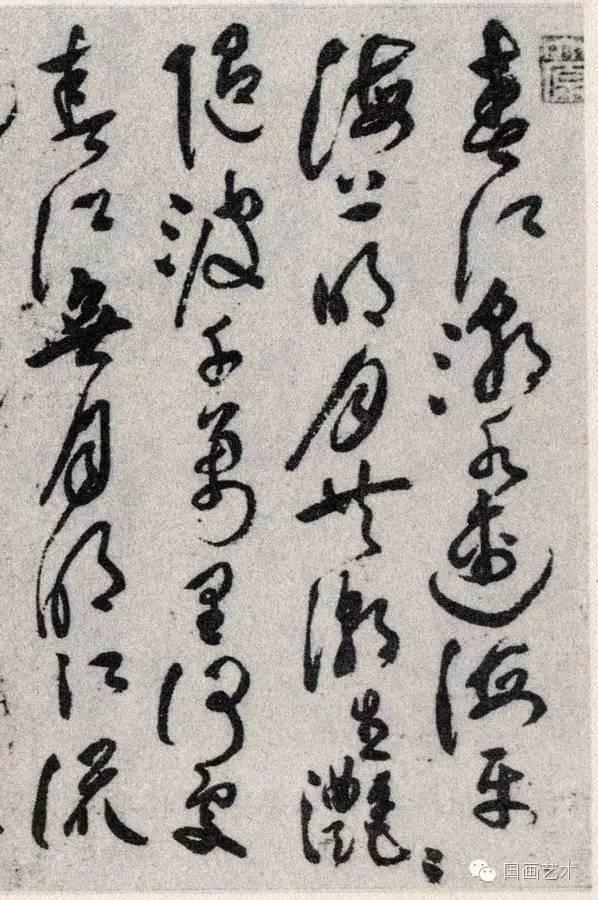 春江潮水連海平
海上明月共潮生灧〻
隨波千萬里何處
春江無月明江流
国画艺术